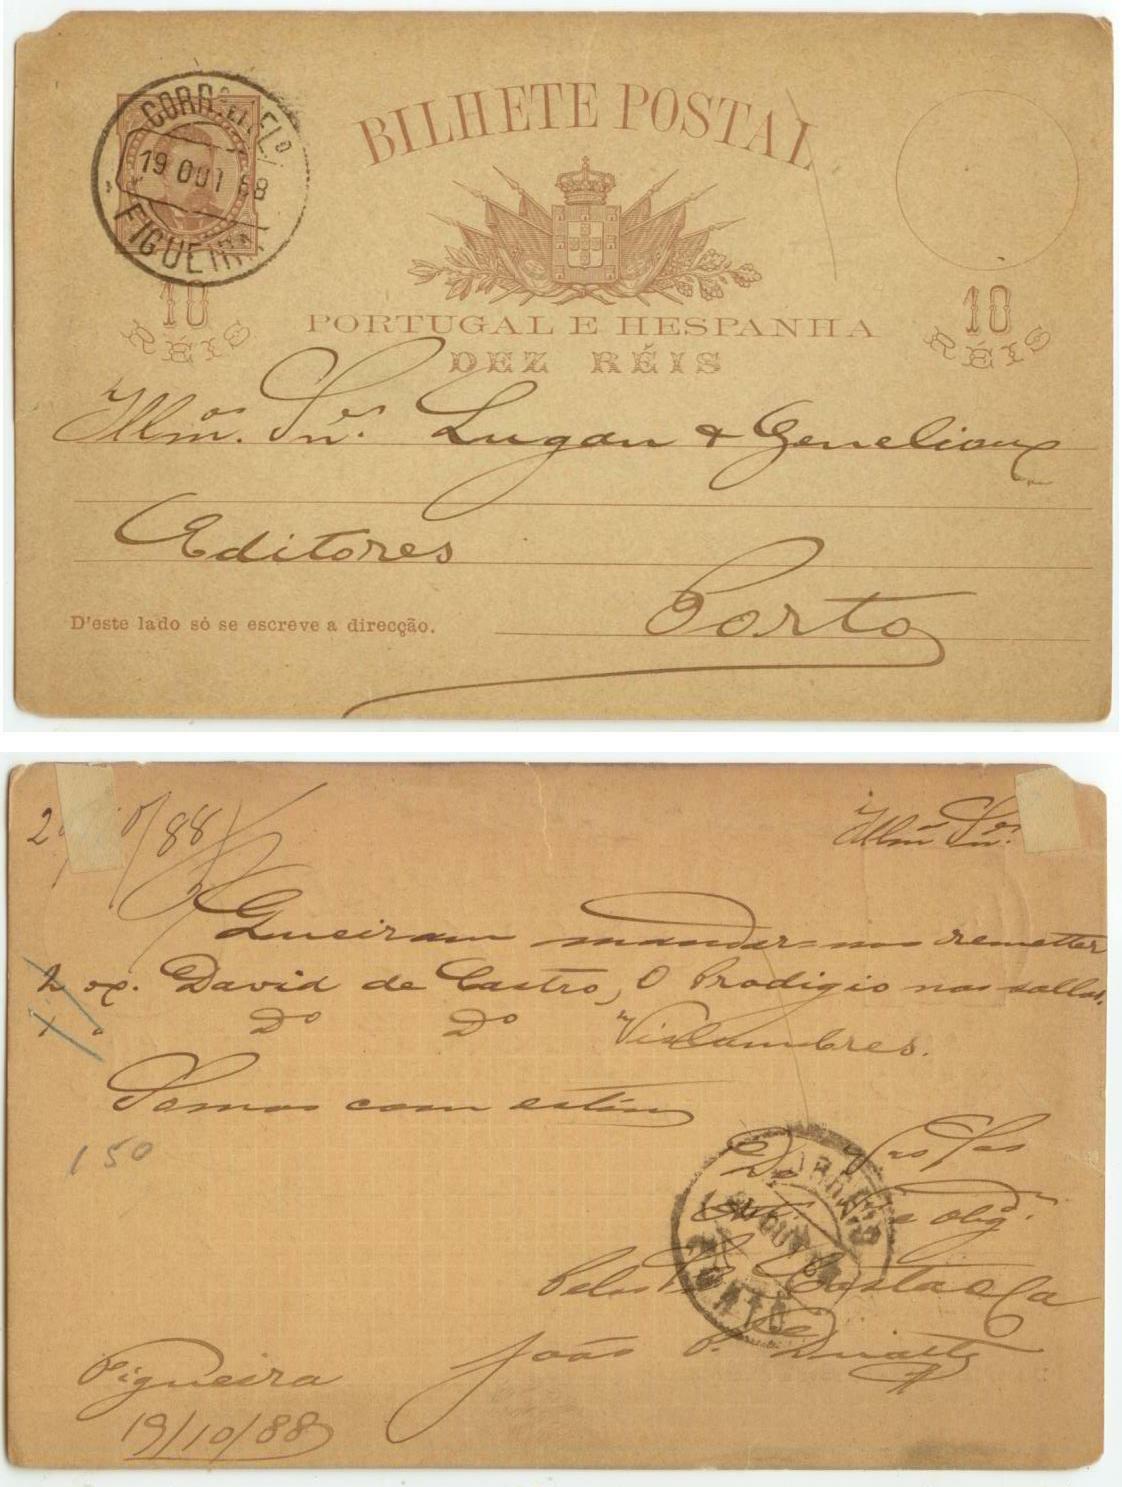 CORRº E TELº
19 OUT 88
FIGUEIRA
BILHETE POSTAL
PORTUGAL E HESPANHA
DEZ RÉIS
10 RÉIS
10 RÉIS
Illmos. Snres. Lugan & Genelioux
Editores
Porto
D'este lado só se escreve a direcção.
/88
Illmos Snrs.
Queiram mandar-nos remetter
2 ex. David de Castro, O Prodigio nas sallas,
Dº Dº Vislumbres.
Somos com estima
150
De Vas Sas
e obgº.
CORREIO
OUT
PORTO
Costa & Ca
João Duarte
Figueira
19/10/88